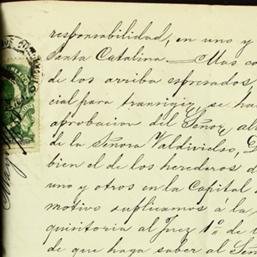 responsabilidad, en uno y
Santa Catalina. Mas co
de los arriba espresados,
cial para transigir, se ha
aprobacion del Señor al
de la Señora Valdivielso,
bien el de los herederos d
uno y otros en la Capital d
motivo suplicamos á la
quisitoria al Juez 1º de
de que haga saber al Señ